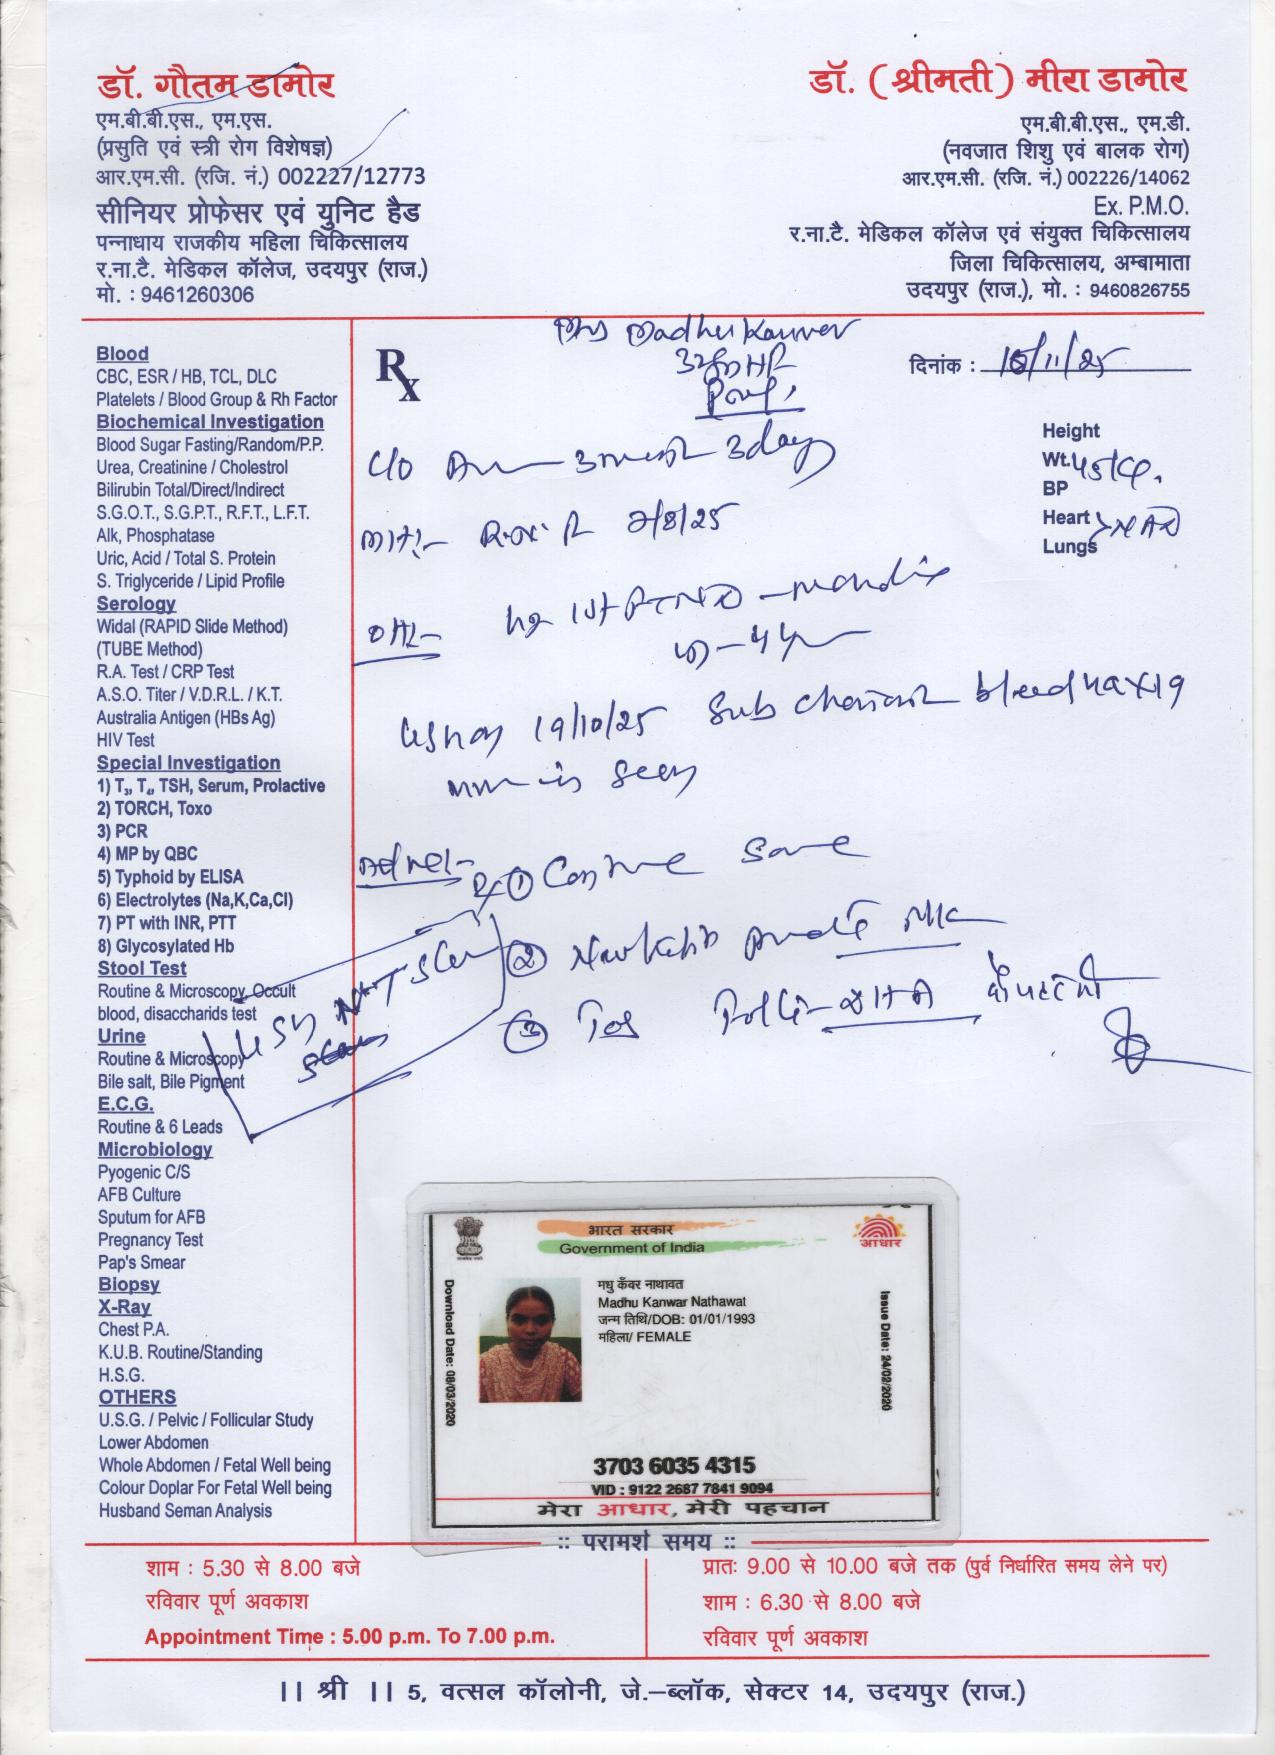 डॉ. गौतम डामोर
एम.बी.बी.एस., एम.एस.
(प्रसुति एवं स्त्री रोग विशेषज्ञ)
आर.एम.सी. (रजि. नं.) 002227/12773
सीनियर प्रोफेसर एवं युनिट हैड
पन्नाधाय राजकीय महिला चिकित्सालय
र.ना.टै. मेडिकल कॉलेज, उदयपुर (राज.)
मो. : 9461260306
डॉ. (श्रीमती) मीरा डामोर
एम.बी.बी.एस., एम.डी.
(नवजात शिशु एवं बालक रोग)
आर.एम.सी. (रजि. नं.) 002226/14062
Ex. P.M.O.
र.ना.टै. मेडिकल कॉलेज एवं संयुक्त चिकित्सालय
जिला चिकित्सालय, अम्बामाता
उदयपुर (राज.), मो. : 9460826755
Blood
CBC, ESR / HB, TCL, DLC
Platelets / Blood Group & Rh Factor
Biochemical Investigation
Blood Sugar Fasting/Random/P.P.
Urea, Creatinine / Cholestrol
Bilirubin Total/Direct/Indirect
S.G.O.T., S.G.P.T., R.F.T., L.F.T.
Alk, Phosphatase
Uric, Acid / Total S. Protein
S. Triglyceride / Lipid Profile
Serology
Widal (RAPID Slide Method)
(TUBE Method)
R.A. Test / CRP Test
A.S.O. Titer / V.D.R.L. / K.T.
Australia Antigen (HBs Ag)
HIV Test
Special Investigation
1) T₃, T₄, TSH, Serum, Prolactive
2) TORCH, Toxo
3) PCR
4) MP by QBC
5) Typhoid by ELISA
6) Electrolytes (Na,K,Ca,Cl)
7) PT with INR, PTT
8) Glycosylated Hb
Stool Test
Routine & Microscopy, Occult
blood, disaccharids test
Urine
Routine & Microscopy
Bile salt, Bile Pigment
E.C.G.
Routine & 6 Leads
Microbiology
Pyogenic C/S
AFB Culture
Sputum for AFB
Pregnancy Test
Pap's Smear
Biopsy
X-Ray
Chest P.A.
K.U.B. Routine/Standing
H.S.G.
OTHERS
U.S.G. / Pelvic / Follicular Study
Lower Abdomen
Whole Abdomen / Fetal Well being
Colour Doplar For Fetal Well being
Husband Seman Analysis
Rx
Madhu Kanwer
दिनांक : 15/11/25
Height
Wt. 45
BP
Heart
Lungs NAD
C/O 3 3 days
2/8/25
1st FTND
USG 19/10/25 Sub bleed 49x19
mm is seen
Rx ① Same
②
③
USG NT Scan
भारत सरकार
Government of India
आधार
मधु कँवर नाथावत
Madhu Kanwar Nathawat
जन्म तिथि/DOB: 01/01/1993
महिला/ FEMALE
Download Date: 08/03/2020
Issue Date: 24/02/2020
3703 6035 4315
VID : 9122 2687 7841 9094
मेरा आधार, मेरी पहचान
:: परामर्श समय ::
शाम : 5.30 से 8.00 बजे
रविवार पूर्ण अवकाश
Appointment Time : 5.00 p.m. To 7.00 p.m.
प्रातः 9.00 से 10.00 बजे तक (पुर्व निर्धारित समय लेने पर)
शाम : 6.30 से 8.00 बजे
रविवार पूर्ण अवकाश
|| श्री || 5, वत्सल कॉलोनी, जे.–ब्लॉक, सेक्टर 14, उदयपुर (राज.)